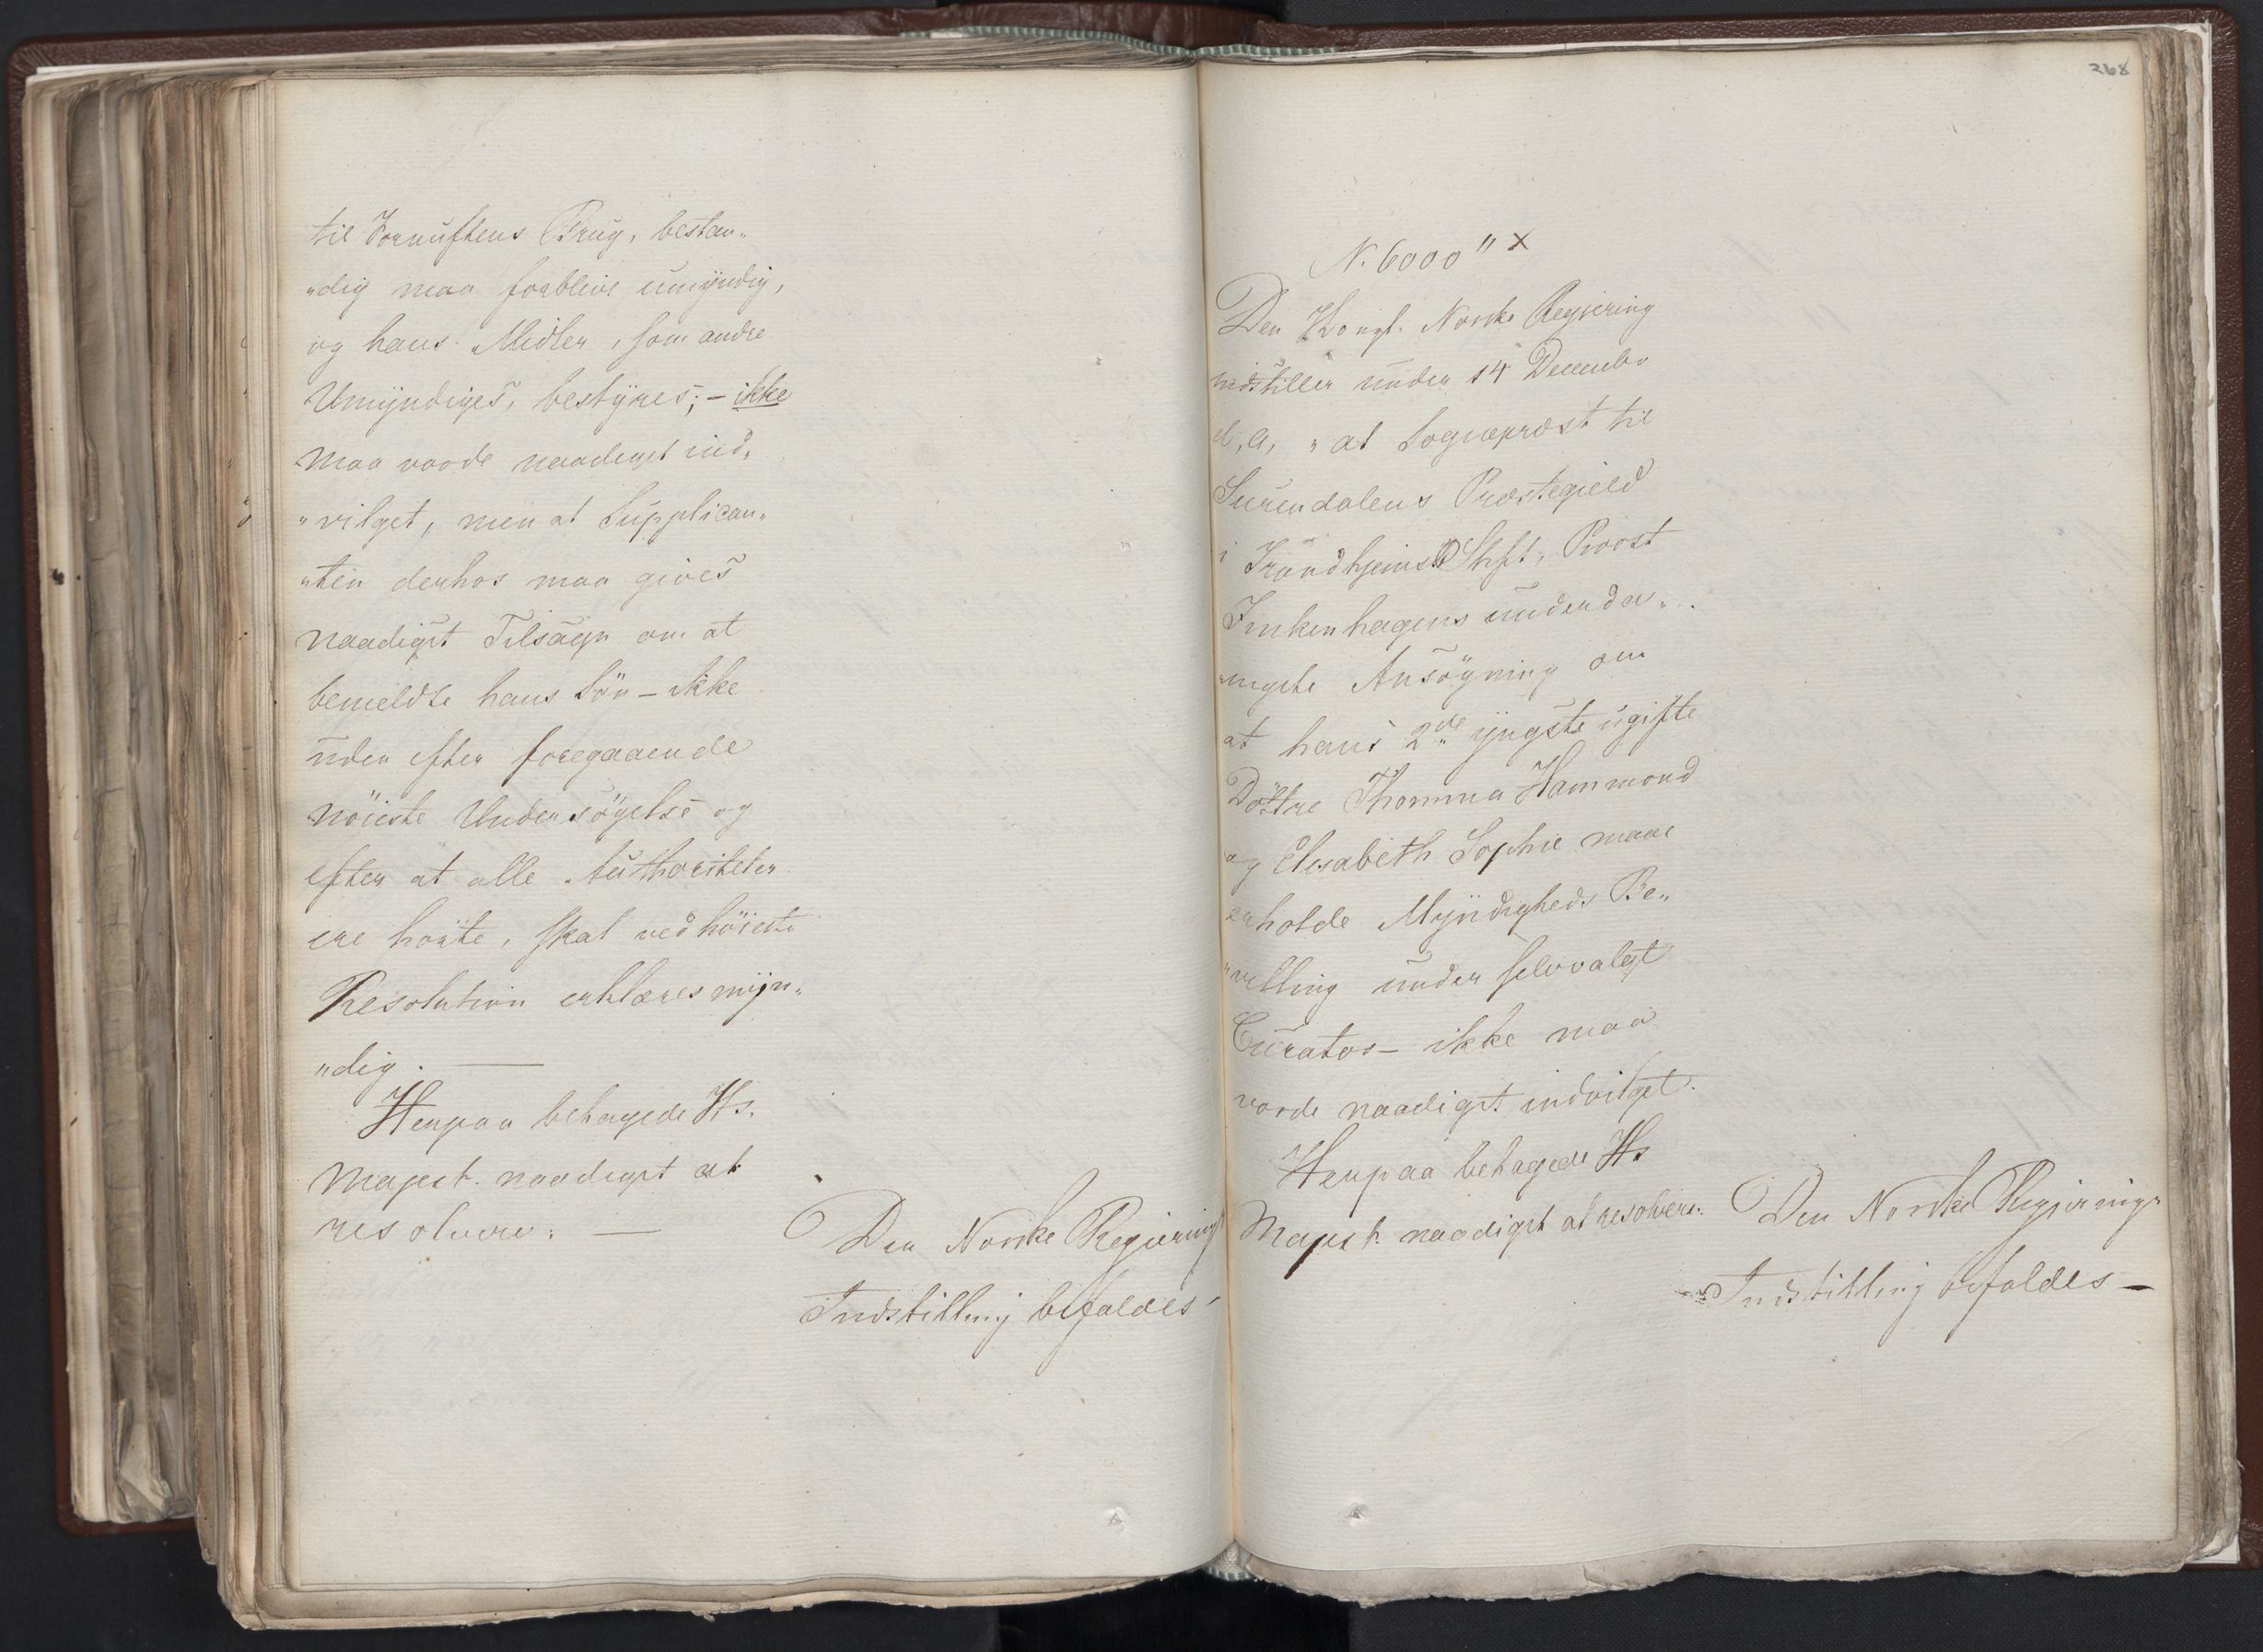 til Fornuftens Brug, bestan„
„dig maa forblive umÿndig,
og hans Midler, som andre
Umÿndiges, bestÿres; – ikke
maa vorde naadigst ind„
„vilget, men at Supplican„
„ten derhos maa gives
naadigst Tilsagn om at
bemeldte hans Sön – ikke
uden efter foregaaende
nöieste Undersögelse og
efter at alle Authoriteter
ere hörte, skal ved höieste
Resolution erklæres mÿn„
„dig. —
Herpaa behagede Hs.
Majest. naadigst at
resolvere: —
Den Norske Regierings
Indstilling bifaldes
268
N. 6000 " x
Den Kongl. Norske Regiering
indstiller under 14 Decembr
d. a, „at Sognepræst til
Surendalens Præstegield
i Trondhjems Stift, Provst
Finkenhagens underda„
„nigste Ansögning om
at hans 2de ÿngste ugifte
Döttre Thomina Hammond
og Elisabeth Sophie maae
erholde Mÿndigheds Be„
„villing under selvvalgt
Curator – ikke maa
vorde naadigst indvilget.
Herpaa behagede Hs
Majest. naadigst at resolvere:
Den Norske Regierings
Indstilling bifaldes –